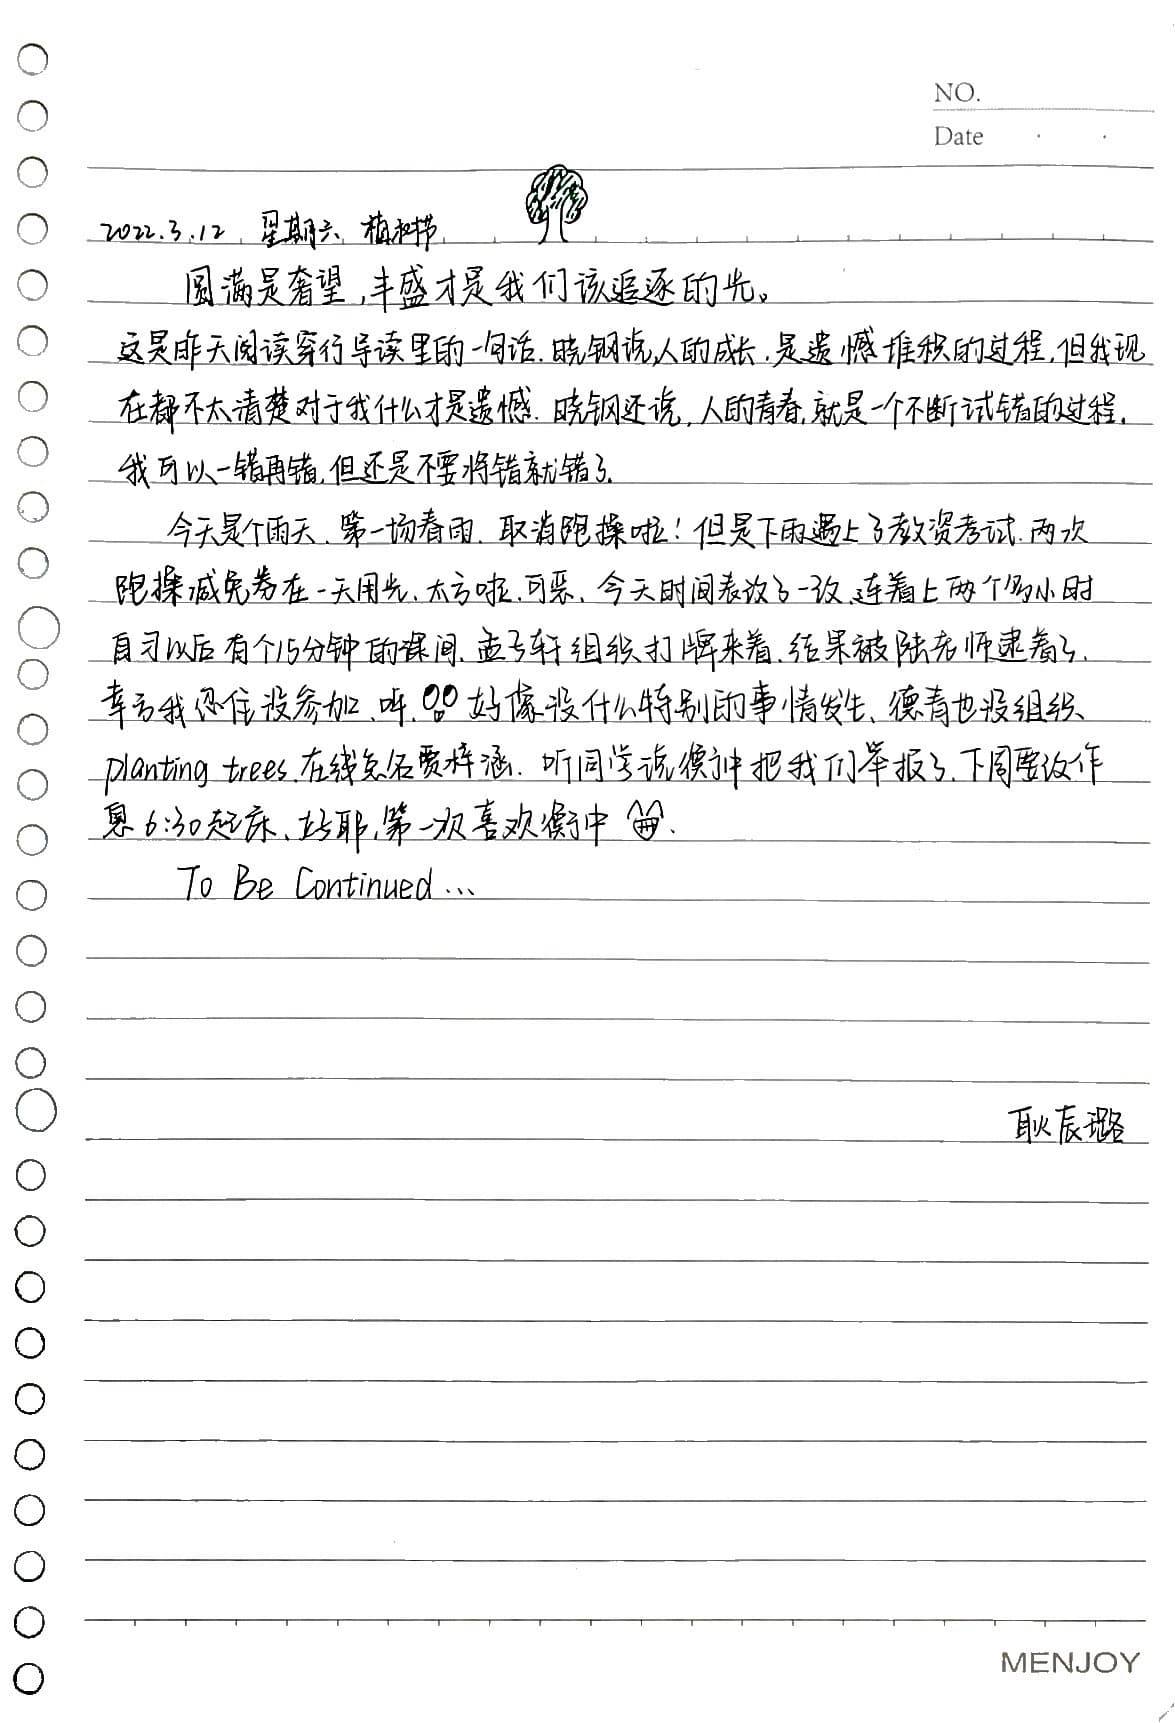 NO.
Date
2022.3.12 星期六 植树节
圆满是奢望，丰盛才是我们该追逐的光。
这是昨天阅读穿行导读里的一句话.晓钢说,人的成长.是遗憾堆积的过程,但我现
在都不太清楚对于我什么才是遗憾.晓钢还说,人的青春,就是一个不断试错的过程.
我可以一错再错,但还是不要将错就错了.
今天是个雨天.第一场春雨.取消跑操啦!但是下雨遇上了教资考试.两次
跑操减免券在一天用光.太亏啦.可恶.今天时间表改了一改.连着上两个多小时
自习以后有个15分钟的课间.孟子轩组织打牌来着.结果被陆老师逮着了.
幸亏我忍住没参加.呼.好像没什么特别的事情发生.德青也没组织
planting trees.在线点名贾梓涵.听同学说衡中把我们举报了.下周要改作
息6:30起床.好耶.第一次喜欢衡中
To Be Continued...
耿辰璐
MENJOY